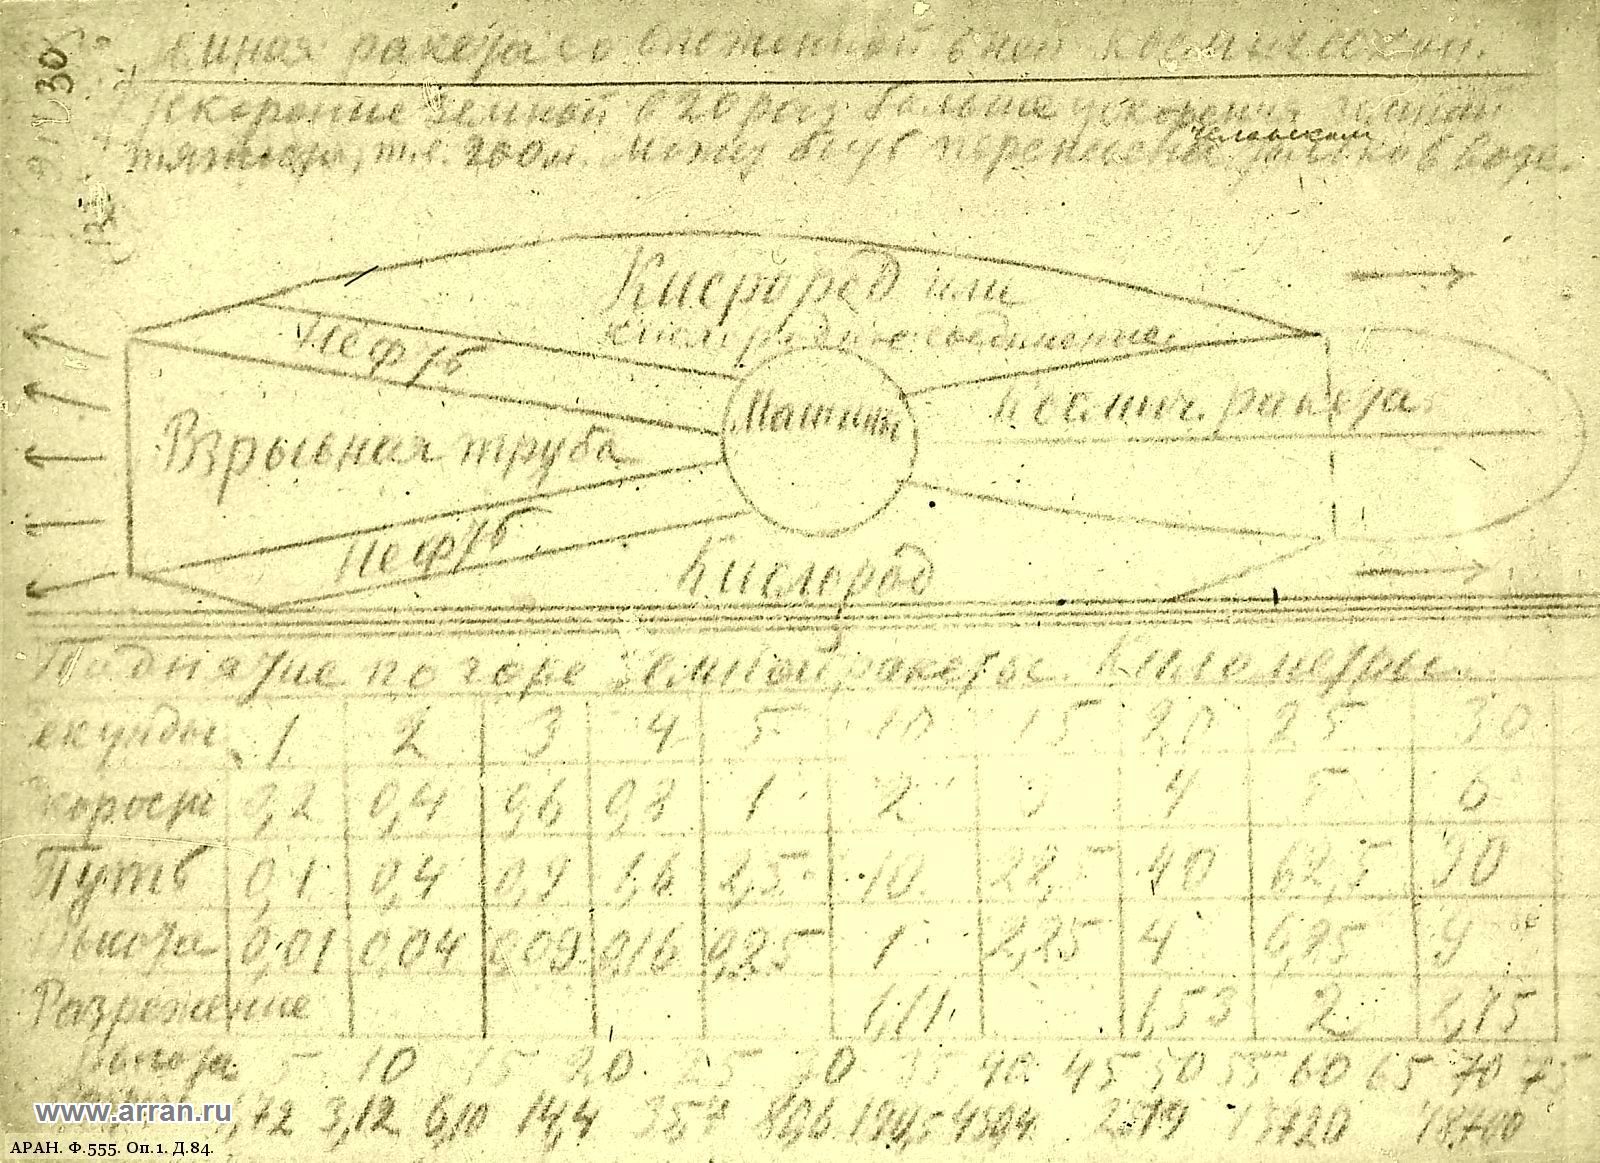 ракета со вложенной в ней космической.
Ускорение земной в 20 раз больше ускорения земной
тяжести, т.е. 200 м. может быть перенесено человеком только в воде.
Кислород или
кислородное соединение.
Нефть
Машины
Космич. ракета
Взрывная труба
Нефть
Кислород
Поднятие по горе земной ракеты. Километры.
Секунды 1 2 3 4 5 10 15 20 25 30
Скорость 0,2 0,4 0,6 0,8 1 2 3 4 5 6
Путь 0,1 0,4 0,9 1,6 2,5 10 22,5 40 62,5 90
Высота 0,01 0,04 0,09 0,16 0,25 1 2,25 4 6,25 9
Разрежение 1,11 1,53 2
Высота 5 10 15 20 25 30 35 40 45 50 55 60 65 70 75
1,72 3,12 6,10 14,4
www.arran.ru
АРАН. Ф.555. Оп.1. Д.84.